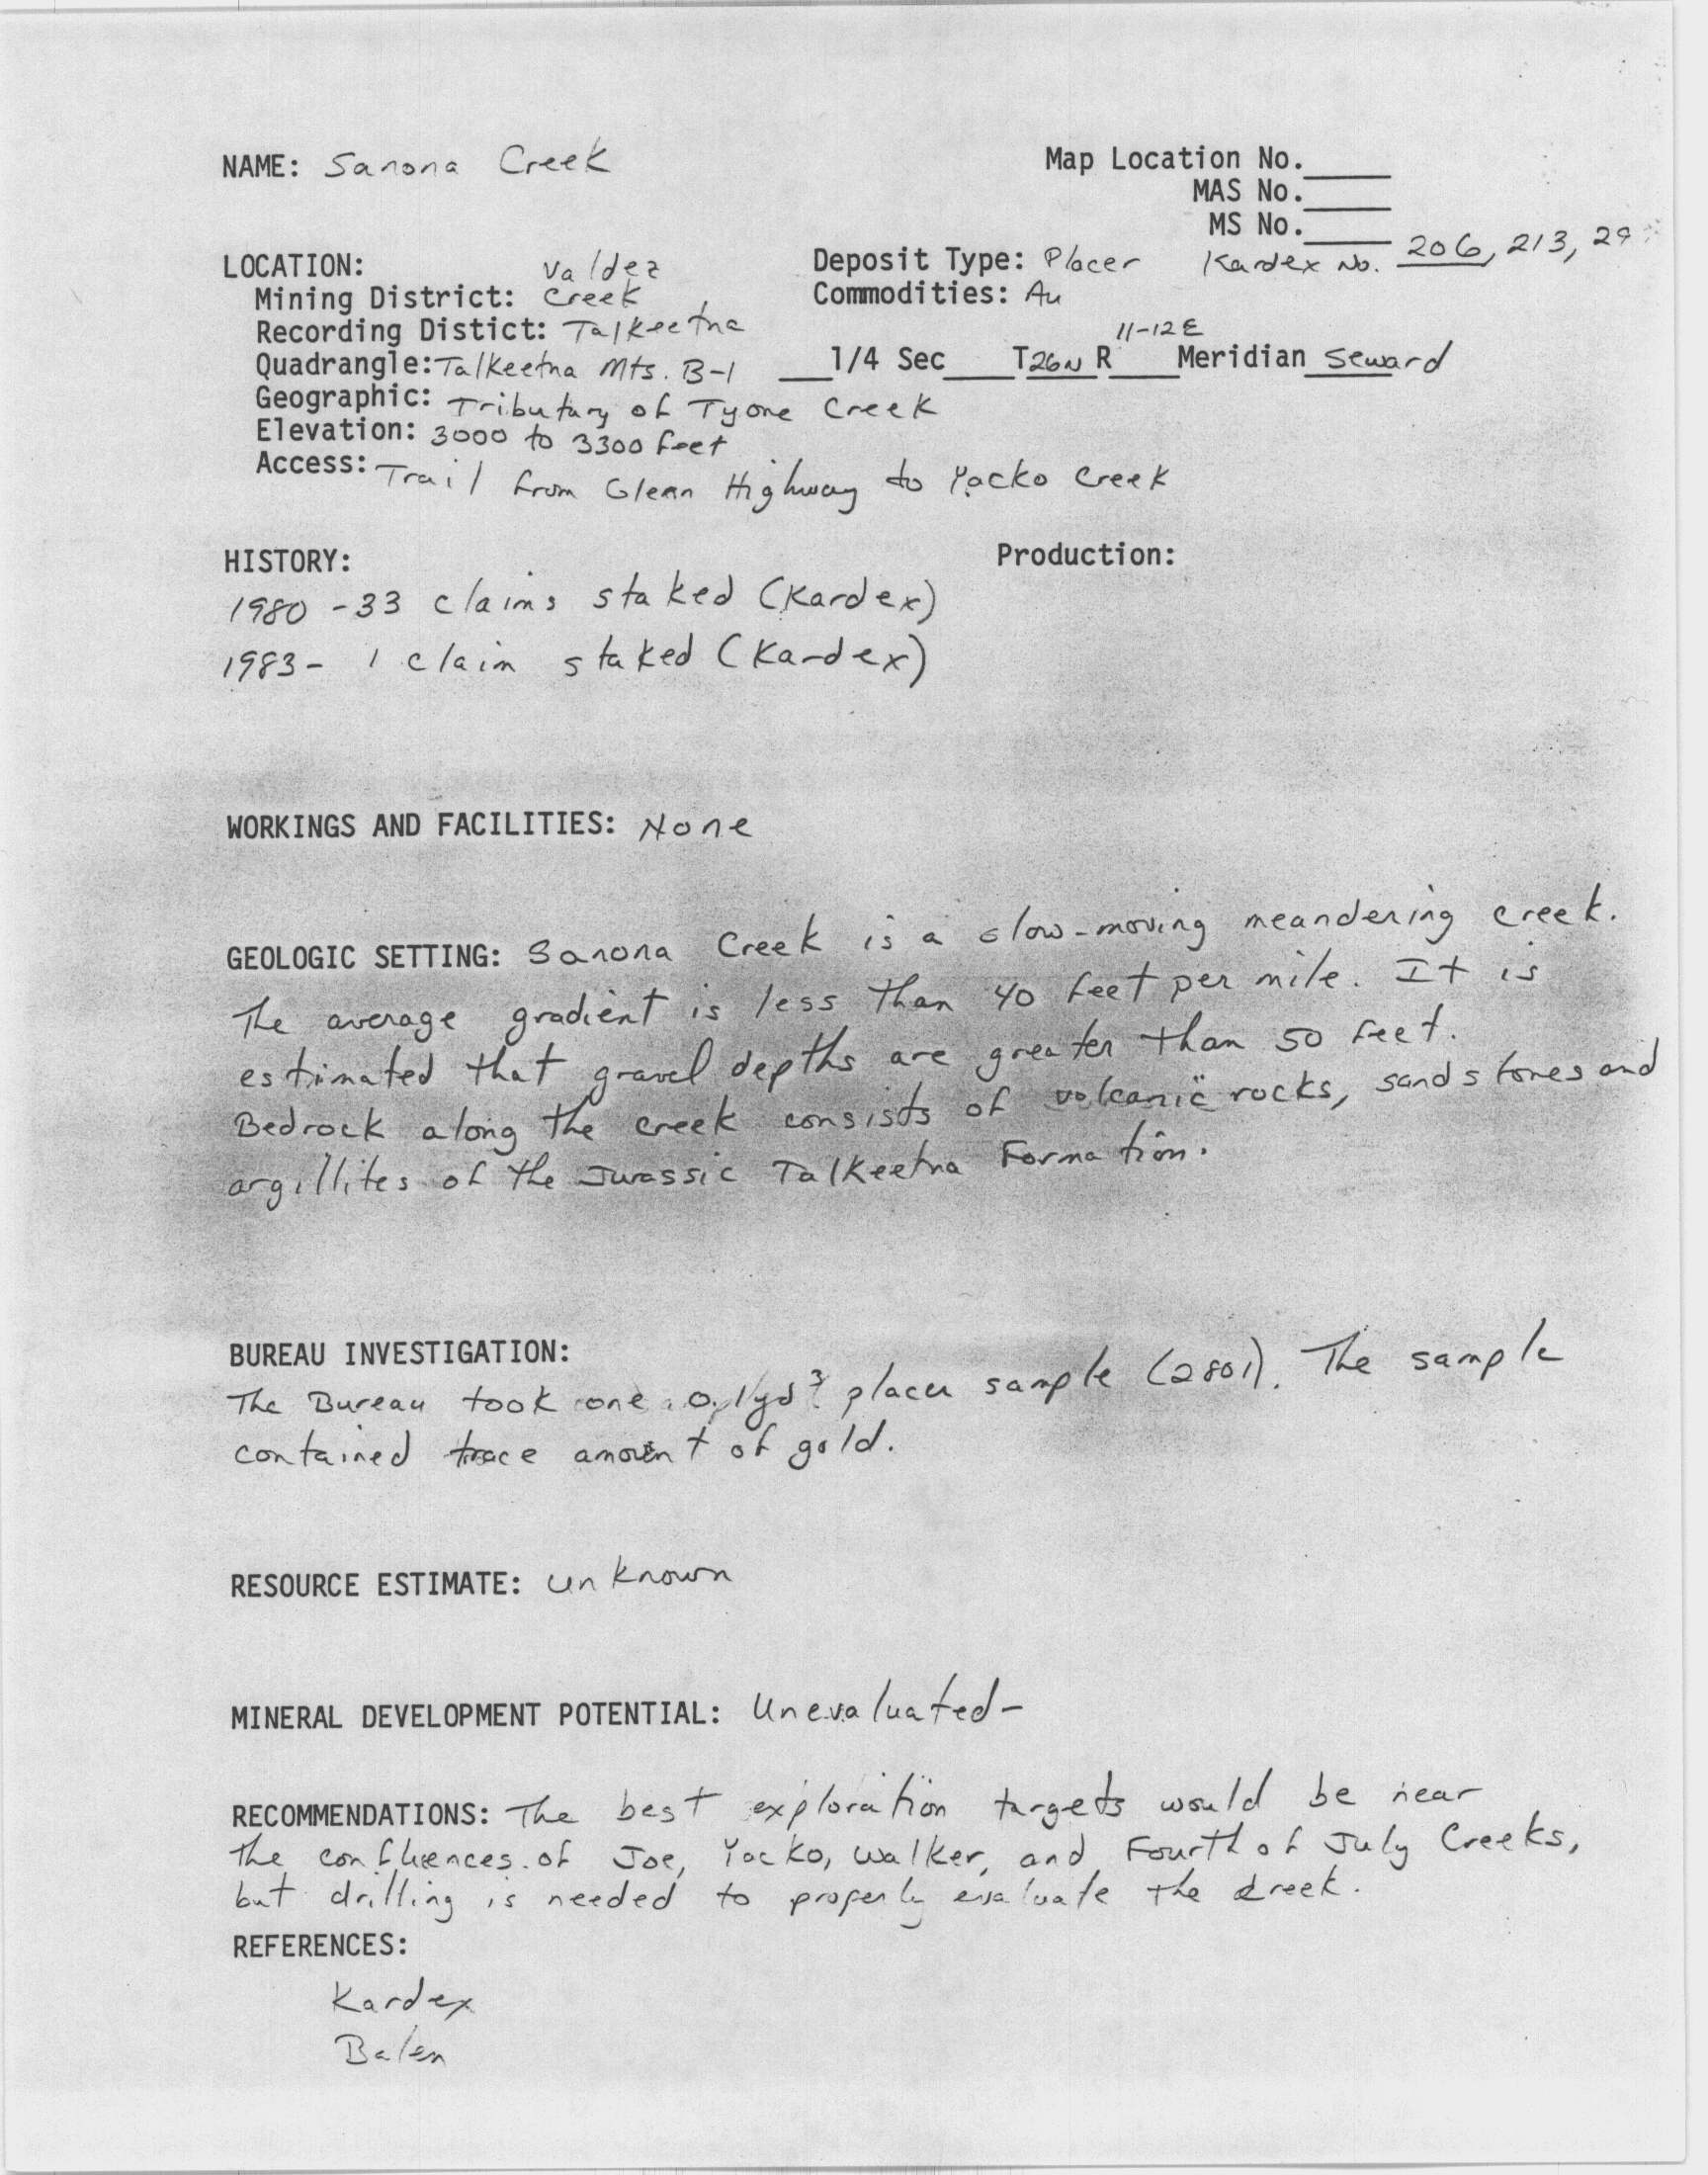 NAME: Sanona Creek
Map Location No.____
MAS No.____
MS No.____
Kardex No. 206, 213, 29
LOCATION:
Mining District: Valdez Creek
Recording Distict: Talkeetna
Quadrangle: Talkeetna Mts. B-1
Geographic: Tributary of Tyone Creek
Elevation: 3000 to 3300 feet
Access: Trail from Glenn Highway to Yacko Creek
Deposit Type: Placer
Commodities: Au
___1/4 Sec____ T26N R 11-12E Meridian Seward
HISTORY:
1980 - 33 claims staked (Kardex)
1983 - 1 claim staked (Kardex)
Production:
WORKINGS AND FACILITIES: None
GEOLOGIC SETTING: Sanona Creek is a slow-moving meandering creek.
The average gradient is less than 40 feet per mile. It is
estimated that gravel depths are greater than 50 feet.
Bedrock along the creek consists of volcanic rocks, sandstones and
argillites of the Jurassic Talkeetna Formation.
BUREAU INVESTIGATION:
The Bureau took one 0.1yd³ placer sample (2801). The sample
contained trace amount of gold.
RESOURCE ESTIMATE: unknown
MINERAL DEVELOPMENT POTENTIAL: Unevaluated-
RECOMMENDATIONS: The best exploration targets would be near
the confluences of Joe, Yacko, Walker, and Fourth of July Creeks,
but drilling is needed to properly evaluate the creek.
REFERENCES:
Kardex
Balen